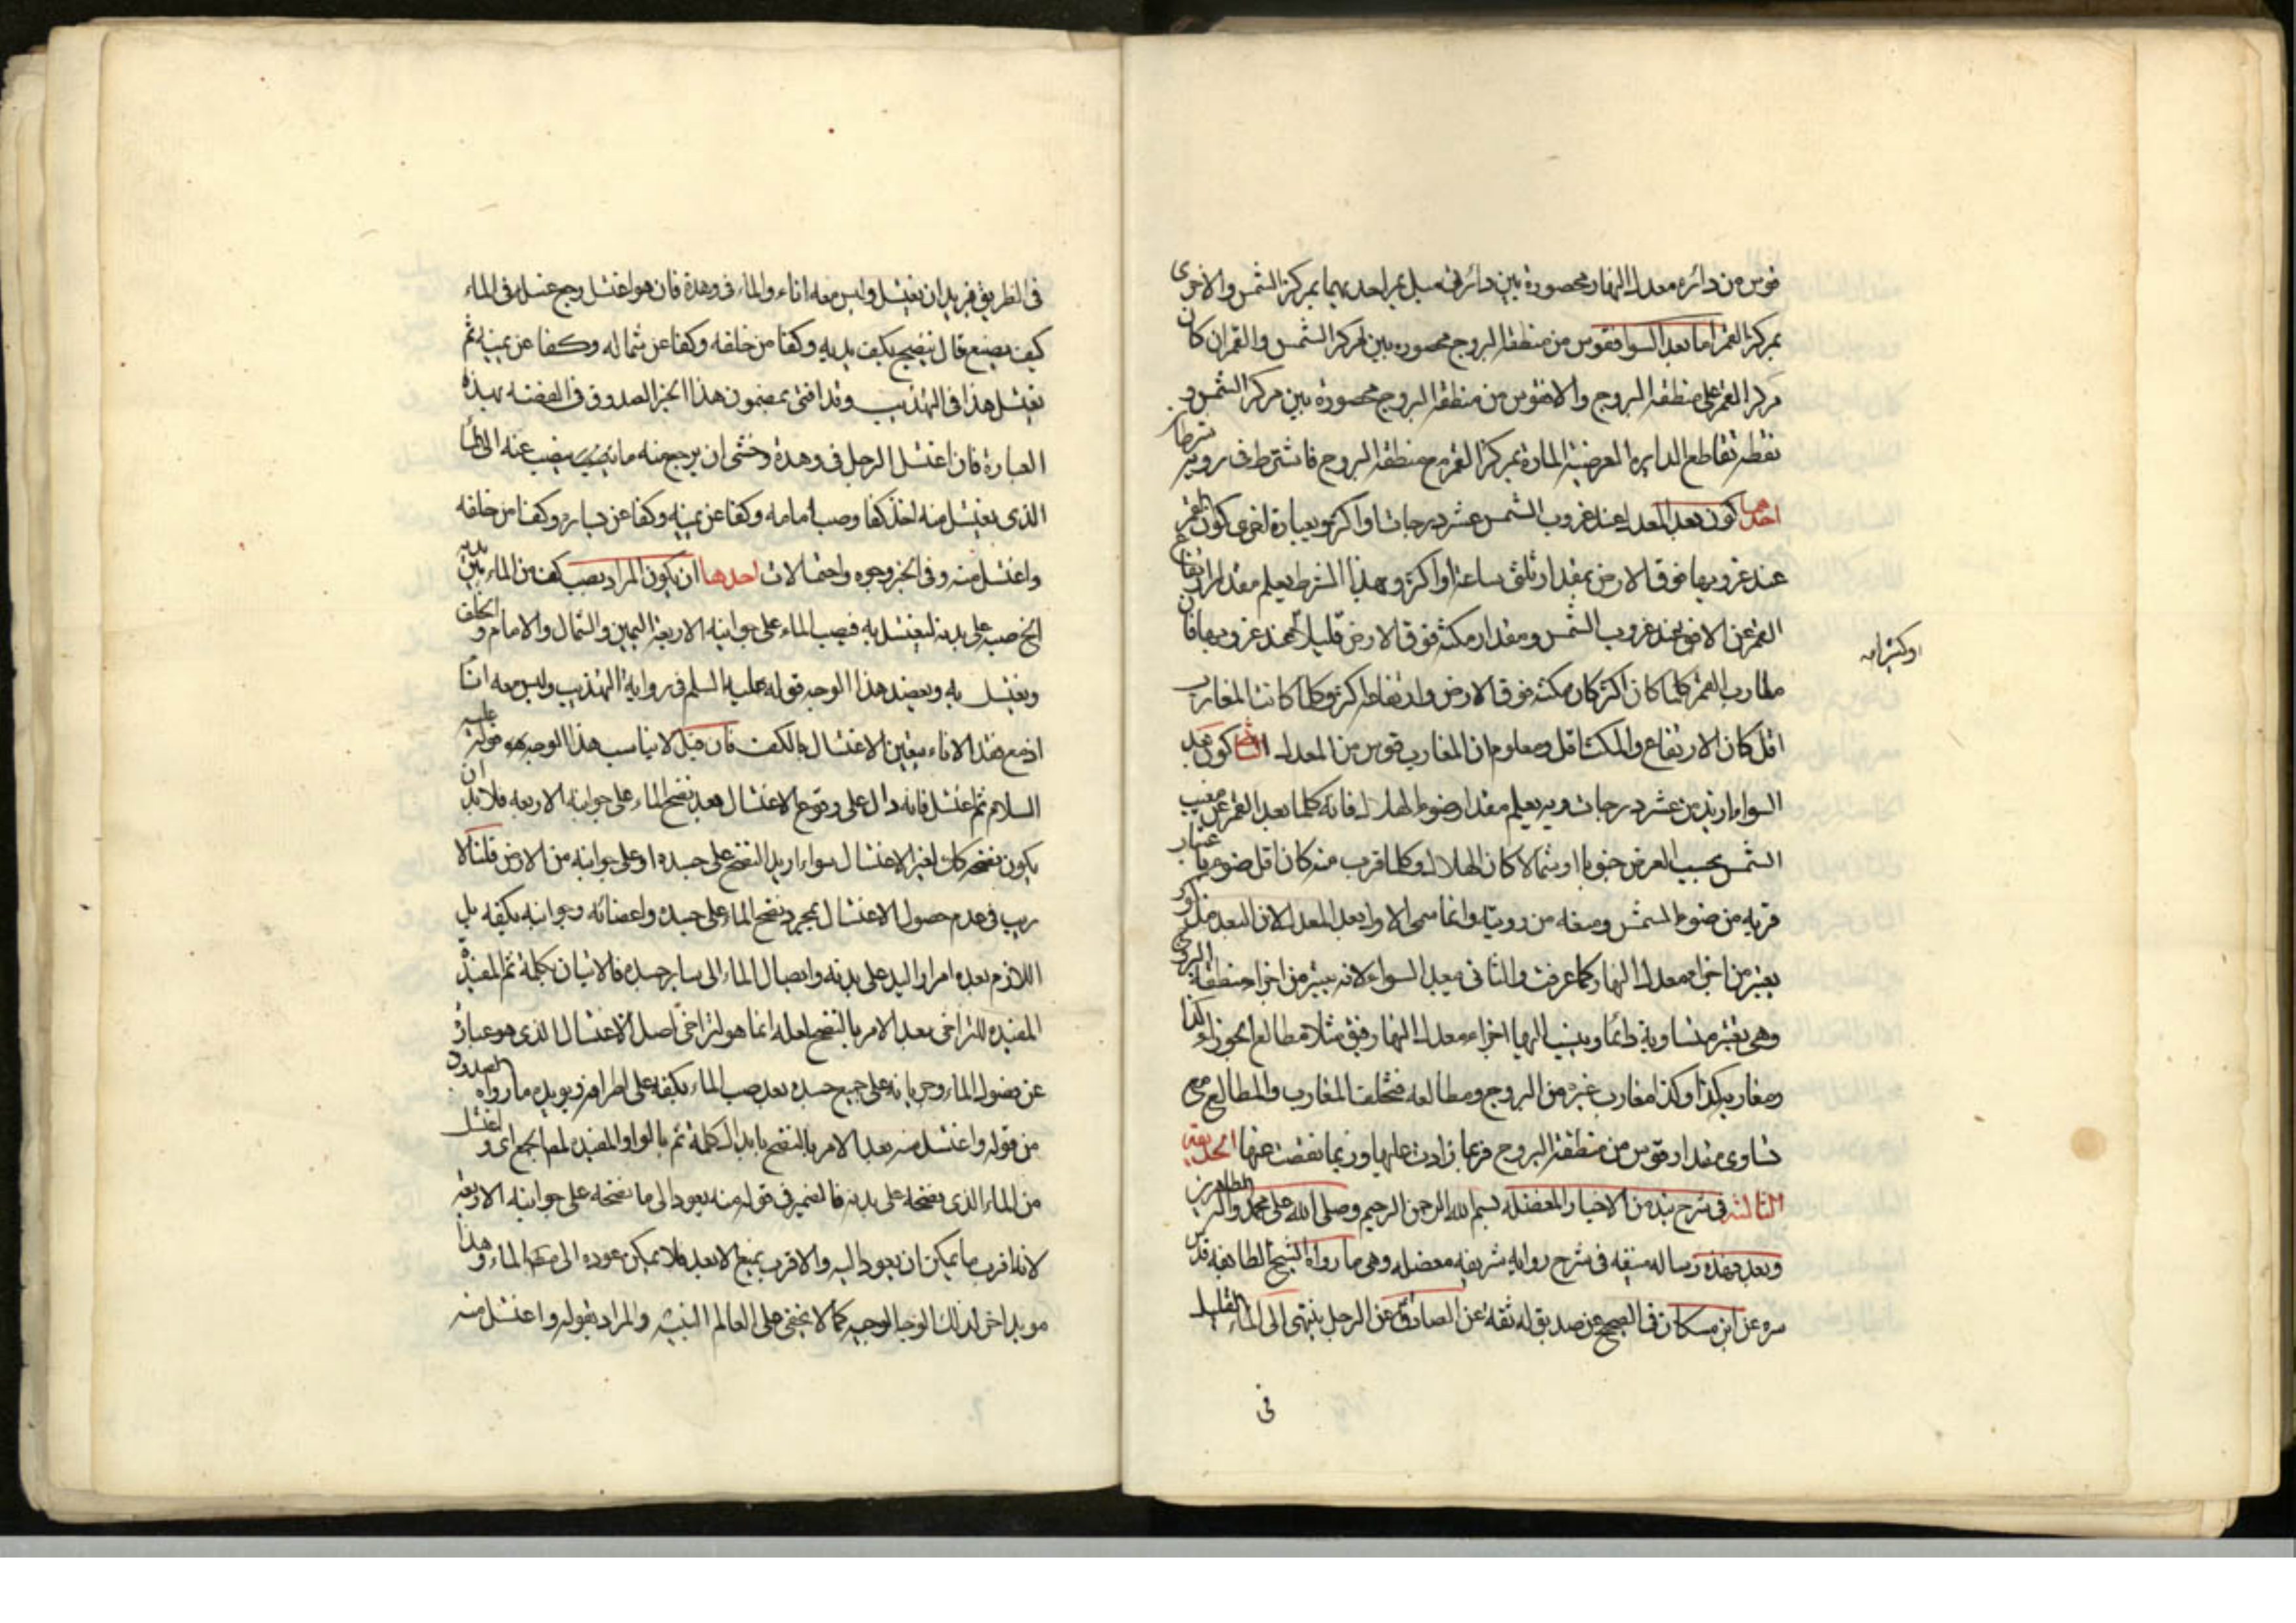 قوس من دائره معدل النهار محصورة بين دائرتى ميل يمر احديهما بمركز الشمس والاخرى
بمركز القمر اما بعد السوا فقوس من منطقة البروج محصوره بين مركز الشمس والقمر ان كان
مركز القمر على منطقة البروج والا فقوس من منطقة البروج محصورة بين مركز الشمس و
نقطة تقاطع الدايرة العرضية المارة بمركز القمر مع منطقة البروج فاشترط فى رويته شرطان
احدهما كون بعد المعدل عند غروب الشمس عشر درجات او اكثر وبعبارة اخرى كون القمر
عند غروبها فوق الارض بمقدار ثلثى ساعة او اكثر وبهذا الشرط يعلم مقدار ارتفاع
القمر عن الافق عند غروب الشمس ومقدار مكثه فوق الارض قليلا عند غروبها فان
او كثيرا منه
مغارب القمر كلما كان اكثر كان مكثه فوق الارض وارتفاعه اكثر وكلما كانت المغارب
اقل كان الارتفاع والمكث اقل ومعلوم ان المغارب قوس من المعدل الثانى كون بعد
السوا ازيد من عشر درجات وبه يعلم مقدار ضوء الهلال فانه كلما بعد القمر عن
الشمس بحسب العرض جنوبا او شمالا كان الهلال وكلما قرب منه كان اقل ضوء باعتبار
قربه من ضوء الشمس ومنعه من رويته وانما سمى الاول بعد المعدل لان البعد مذكور
يعتبر من اجزاء معدل النهار كما عرفت والثانى بعد السواء لانه يعتبر من اجزاء منطقة البروج
وهى يعتبر متساوية دائما وينسب اليها اجزاء معدل النهار فيق مثلا مطالع الجوزاء كذا
ومغاربه كذا وكذا مغارب غيره من البروج ومطالعه فتختلف المغارب والمطالع مع
تساوى مقدار قوس من منطقة البروج فربما زادت عليها وربما نقصت عنها الحديقة
الثالثة فى شرح نبذ من الاخبار المعضله بسم الله الرحمن الرحيم وصلى الله على محمد واله الطاهرين
وبعد فهذه رساله منيفه فى شرح رواية شريفه معضله وهى ما رواه الشيخ الطايفه قدس
سره عن ابن مسكان فى الصحيح عن صديق له ثقة عن الصادق عن الرجل ينتهى الى الماء القليل
فى
فى الطريق فيريد ان يغتسل وليس معه اناء والماء فى وهدة فان هو اغتسل رجع غسله فى الماء
كيف يصنع قال ينضح بكف بين يديه وكفا من خلفه وكفا عن شماله وكفا عن يمينه ثم
يغتسل هذا فى التهذيب وقد افتى بمضمون هذا الخبر الصدوق فى الفقيه بهذه
العبارة فان اغتسل الرجل فى وهدة وخشى ان يرجع منه ما ينصب عنه الى الماء
الذى يغتسل منه اخذ كفا وصب امامه وكفا عن يمينه وكفا عن يساره وكفا من خلفه
واغتسل منه وفى الخبر وجوه واحتمالات احدها ان يكون المراد بصب كف من الماء بين يديه
الخ صبه على بدنه ليغتسل به فيصب الماء على جوانبه الاربعة اليمين والشمال والامام والخلف
ويغتسل به ويعضد هذا الوجه قوله عليه السلم فى رواية التهذيب وليس معه اناء
اذ مع فقد الاناء يتعين الاغتسال بالكف فان قيل لا يناسب هذا الوجه قوله عليه
السلام ثم اغتسل فانه دال على وقوع الاغتسال بعد نضح الماء على جوانبه الاربعه فلابد ان
يكون نضحه كان لغير الاغتسال سواء اريد النضح على جسده او على جوانبه من الارض قلنا لا
ريب فى عدم حصول الاغتسال بمجرد نضح الماء على جسده واعضائه وجوانبه بكفه بل
اللازم بعده امرار اليد على بدنه وايصال الماء الى ساير جسده فالاتيان بكلمة ثم المفيدة
المفيده للتراخى بعد الامر بالنضح لعله انما هو لتراخى اصل الاغتسال الذى هو عبارة
عن وصول الماء وجريانه على جميع جسده بعد صب الماء بكفه على اطرافه ويويده ما رواه الصدوق
من قوله واغتسل منه بعد الامر بالنضح بابدال كلمة ثم بالواو المفيده لمع الجمع اى واغتسل
من الماء الذى نضحه على بدنه فالضمير فى قوله منه يعود الى ما نضحه على جوانبه الاربعة
لانه اقرب ما يمكن ان يعود اليه والاقرب يمنع الابعد فلا يمكن عوده الى الماء وهذا
مويد اخر لذلك الوجه الوجيه كما لا يخفى على العالم النبيه والمراد بقوله واغتسل منه